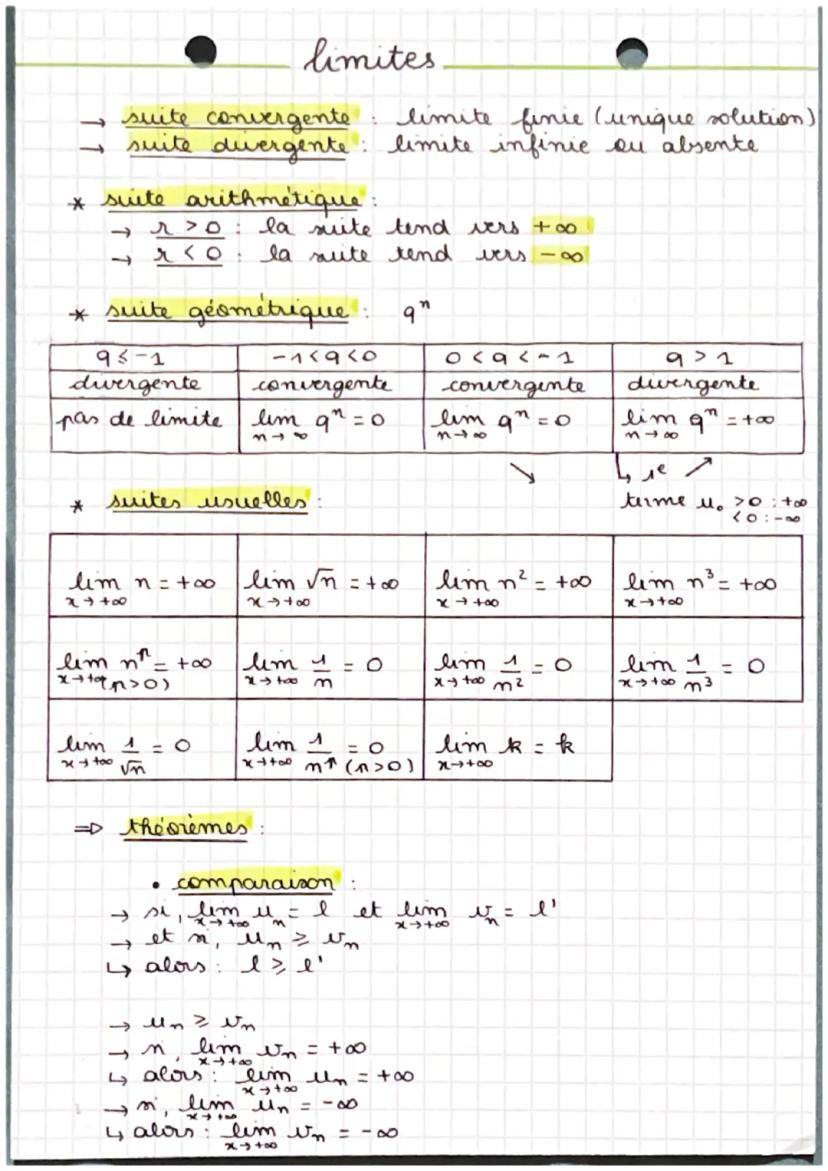 limites
→ suite convergente : limite finie (unique solution)
→ suite divergente : limite infinie ou absente
* suite arithmétique :
→ r > 0 : la suite tend vers +∞
→ r < 0 : la suite tend vers -∞
* suite géométrique : qⁿ
q ≤ -1 | -1 < q < 0 | 0 < q < -1 | q > 1
divergente | convergente | convergente | divergente
pas de limite | lim qⁿ = 0 | lim qⁿ = 0 | lim qⁿ = +∞
n → ∞ | n → ∞ | n → ∞
↘ ↳ 1e ↗
terme u₀ > 0 : +∞
< 0 : -∞
* suites usuelles :
lim n = +∞ | lim √n = +∞ | lim n² = +∞ | lim n³ = +∞
x → +∞ | x → +∞ | x → +∞ | x → +∞
lim nʳ = +∞ | lim 1/n = 0 | lim 1/n² = 0 | lim 1/n³ = 0
x → +∞ (r > 0) | x → +∞ | x → +∞ | x → +∞
lim 1/√n = 0 | lim 1/nʳ = 0 | lim k = k
x → +∞ | x → +∞ (r > 0) | x → +∞
⇒ théorèmes :
• comparaison :
→ si, lim uₙ = l et lim vₙ = l'
x → +∞ x → +∞
→ et si, uₙ ≥ vₙ
↳ alors : l ≥ l'
→ uₙ ≥ vₙ
→ si, lim vₙ = +∞
x → +∞
↳ alors : lim uₙ = +∞
x → +∞
→ si, lim uₙ = -∞
x → +∞
↳ alors : lim vₙ = -∞
x → +∞